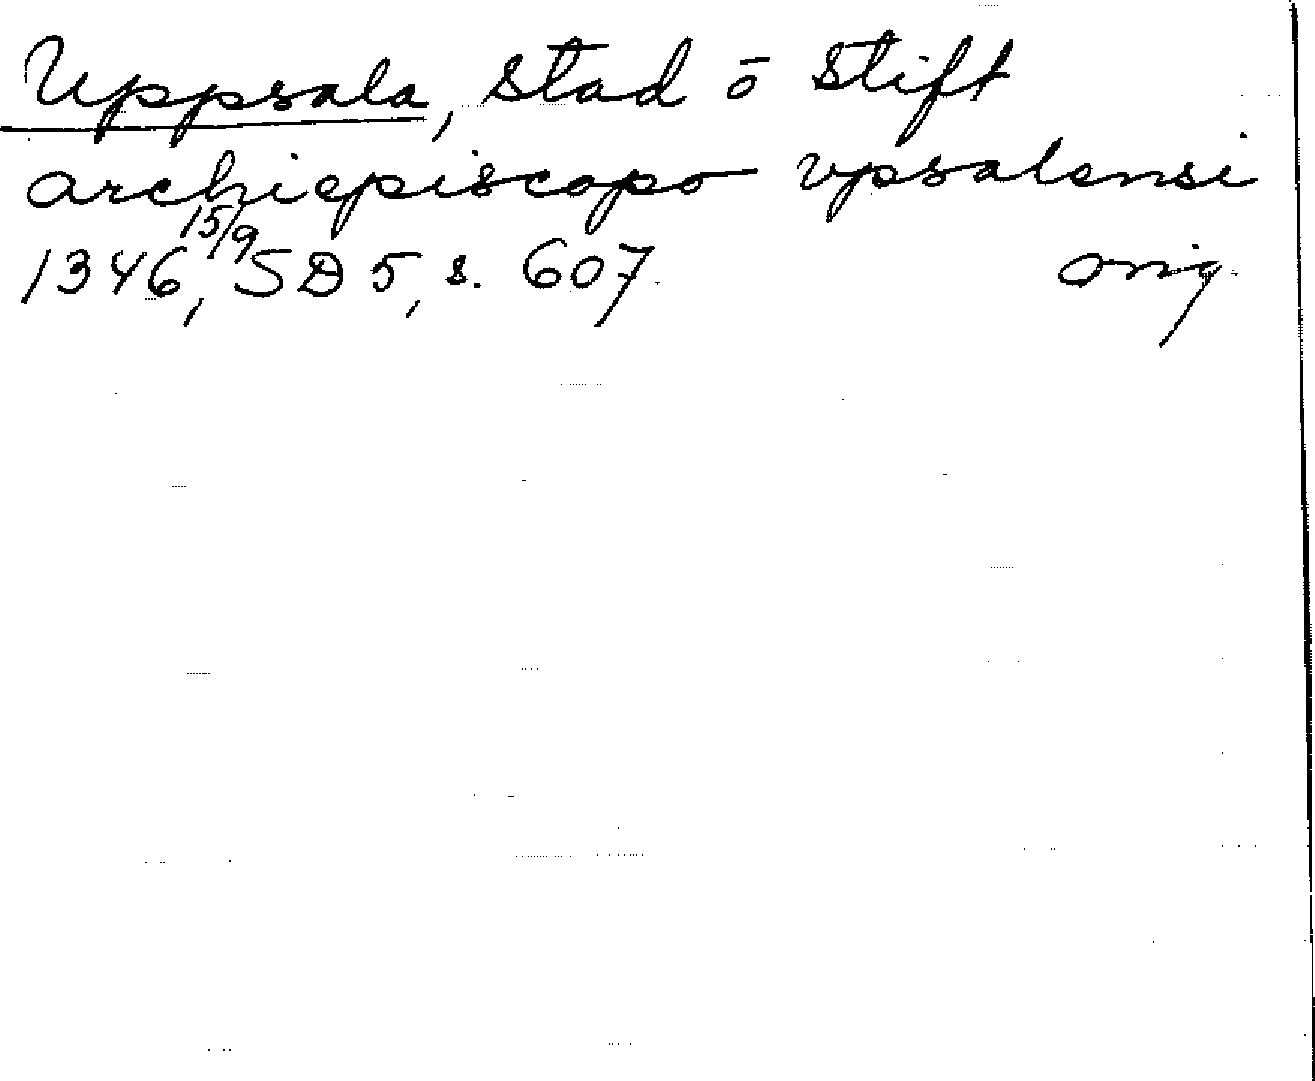 Uppsala, stad ō stift
archiepiscopo vpsalensi
1346, 15/9 SD 5, s. 607. orig.